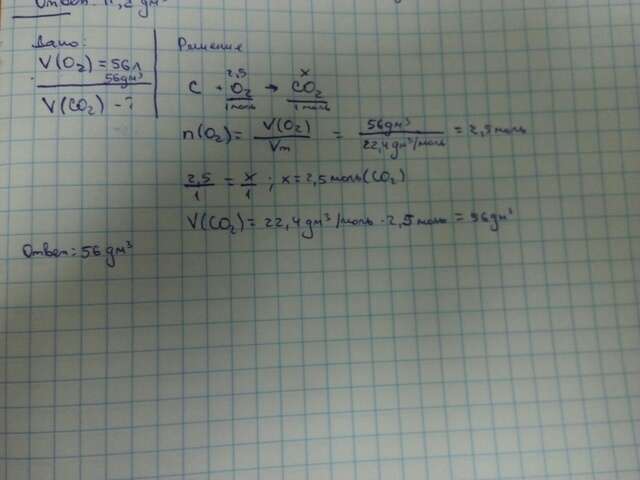 Ответ: 11,2 дм³
Дано:
V(O₂) = 56л
56дм³
V(CO₂) - ?
Решение
2,5 x
C + O₂ → CO₂
1 моль 1 моль
n(O₂) = V(O₂)/Vm = 56дм³/22,4дм³/моль = 2,5 моль
2,5/1 = x/1 ; x = 2,5 моль (CO₂)
V(CO₂) = 22,4 дм³/моль · 2,5 моль = 56дм³
Ответ: 56 дм³